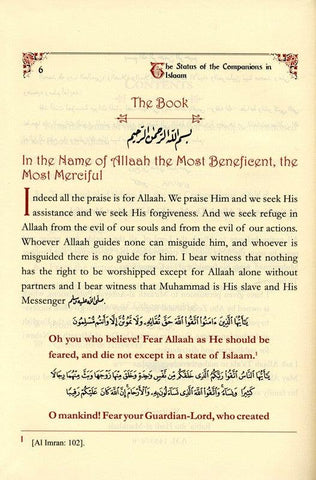 6
The Status of the Companions in
Islaam
The Book
بسم الله الرحمن الرحيم
In the Name of Allaah the Most Beneficent, the
Most Merciful
Indeed all the praise is for Allaah. We praise Him and we seek His
assistance and we seek His forgiveness. And we seek refuge in
Allaah from the evil of our souls and from the evil of our actions.
Whoever Allaah guides none can misguide him, and whoever is
misguided there is no guide for him. I bear witness that nothing
has the right to be worshipped except for Allaah alone without
partners and I bear witness that Muhammad is His slave and His
Messenger صلى الله عليه وسلم
يَٰٓأَيُّهَا ٱلَّذِينَ ءَامَنُوا۟ ٱتَّقُوا۟ ٱللَّهَ حَقَّ تُقَاتِهِۦ وَلَا تَمُوتُنَّ إِلَّا وَأَنتُم مُّسْلِمُونَ
Oh you who believe! Fear Allaah as He should be
feared, and die not except in a state of Islaam.¹
يَٰٓأَيُّهَا ٱلنَّاسُ ٱتَّقُوا۟ رَبَّكُمُ ٱلَّذِى خَلَقَكُم مِّن نَّفْسٍ وَٰحِدَةٍ وَخَلَقَ مِنْهَا زَوْجَهَا وَبَثَّ مِنْهُمَا رِجَالًا
كَثِيرًا وَنِسَآءً وَٱتَّقُوا۟ ٱللَّهَ ٱلَّذِى تَسَآءَلُونَ بِهِۦ وَٱلْأَرْحَامَ إِنَّ ٱللَّهَ كَانَ عَلَيْكُمْ رَقِيبًا
O mankind! Fear your Guardian-Lord, who created
1 [Al Imran: 102].